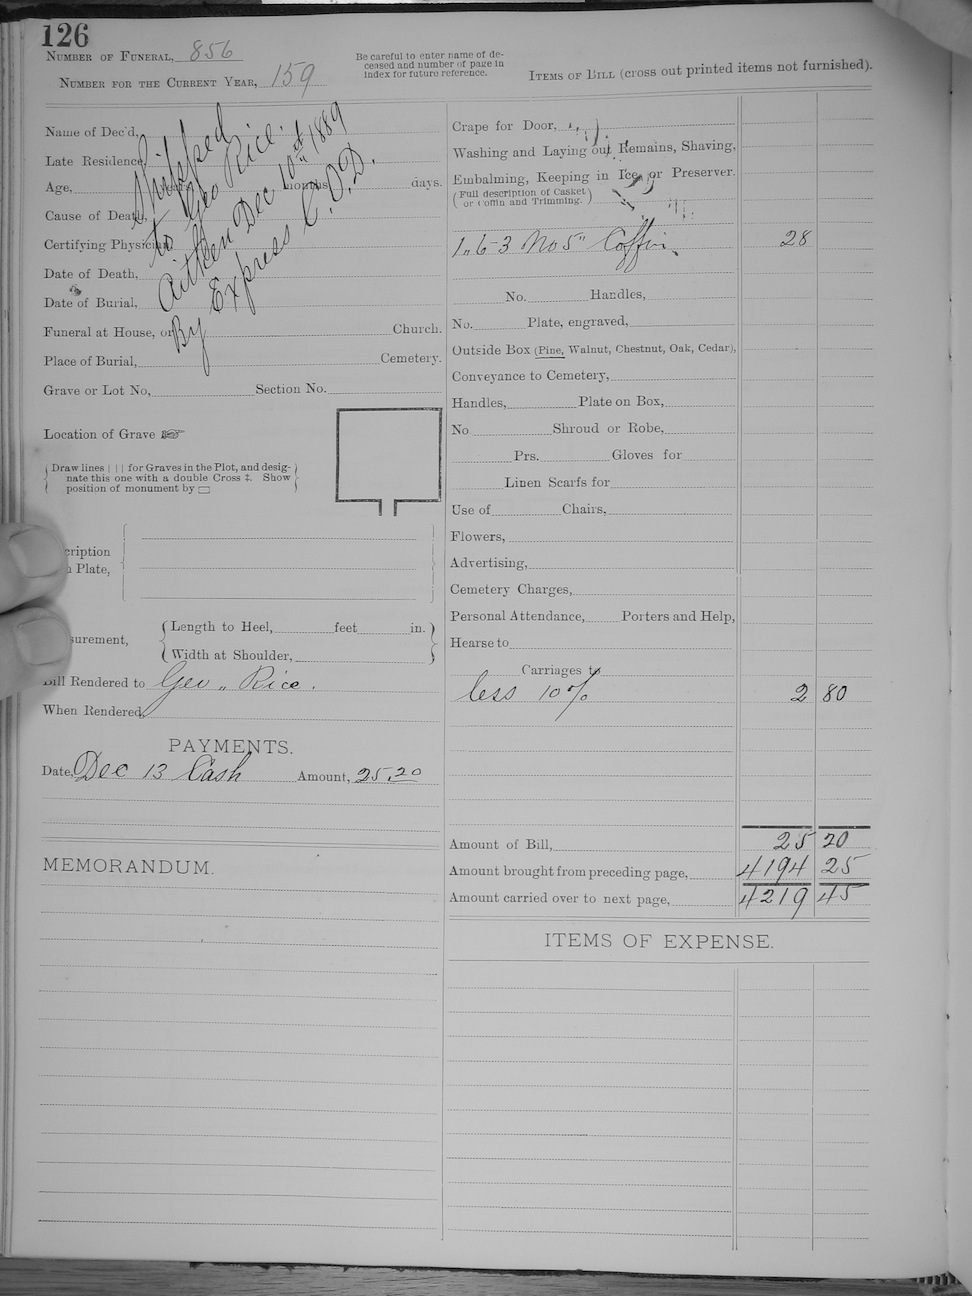 126
NUMBER OF FUNERAL, 856
NUMBER FOR THE CURRENT YEAR, 159
Be careful to enter name of de-
ceased and number of page in
index for future reference.
ITEMS OF BILL (cross out printed items not furnished).
Name of Dec'd,
Late Residence,
Age, years months days.
Cause of Death,
Certifying Physician
Date of Death,
Date of Burial,
Funeral at House, or Church.
Place of Burial, Cemetery.
Grave or Lot No, Section No.
Shipped
to Geo Rice.
Aitken Dec 10th 1889
By Express C.O.D.
Location of Grave ☞
Draw lines | | | for Graves in the Plot, and desig-
nate this one with a double Cross ‡. Show
position of monument by ▭
cription
Plate,
surement,
Length to Heel, feet in.
Width at Shoulder,
Bill Rendered to Geo " Rice.
When Rendered,
PAYMENTS.
Date, Dec 13 Cash Amount, 25.20
MEMORANDUM.
Crape for Door,
Washing and Laying out Remains, Shaving.
Embalming, Keeping in Ice, or Preserver.
(Full description of Casket
or Coffin and Trimming.)
1 " 6-3 No 5 " Coffin 28
No. Handles,
No. Plate, engraved,
Outside Box (Pine, Walnut, Chestnut, Oak, Cedar),
Conveyance to Cemetery,
Handles, Plate on Box,
No. Shroud or Robe,
Prs. Gloves for
Linen Scarfs for
Use of Chairs,
Flowers,
Advertising,
Cemetery Charges,
Personal Attendance, Porters and Help,
Hearse to
Carriages to
less 10% 2 80
Amount of Bill, 25 20
Amount brought from preceding page, 4194 25
Amount carried over to next page, 4219 45
ITEMS OF EXPENSE.